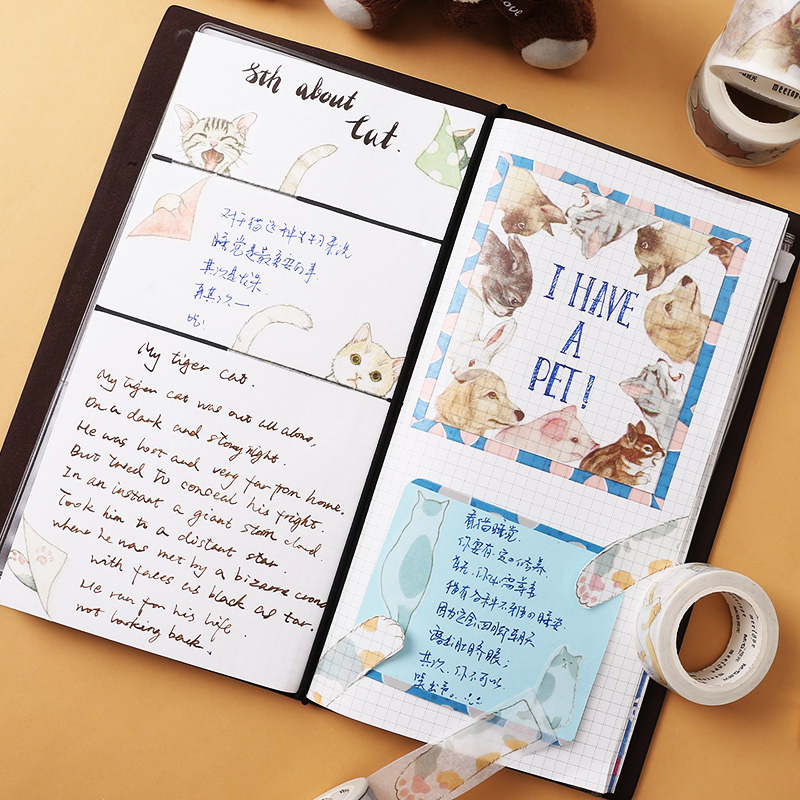 8th about
Cat.
对于猫这种生物来说
睡觉是最重要的事
其次是发呆
再其次一
吃!
My tiger cat.
My tiger cat was out all alone,
On a dark and stormy night.
He was lost and very far from home.
But tried to conceal his fright.
In an instant a giant storm cloud
Took him to a distant star.
where he was met by a bizarre crowd
with faces as black as tar.
He ran for his life.
not looking back.
I HAVE
A
PET!
看猫睡觉.
你要有一定的修养.
首先,你需要
猫有各种不同的睡姿
因为它会四脚朝天
露出肚脐眼;
其次,你不可以
笑出声。
love
meetape
meetape